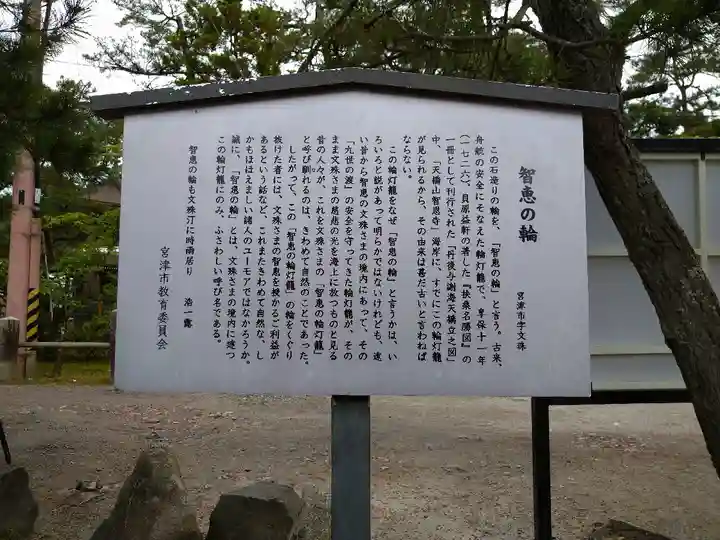 智恵の輪
宮津市字文珠
この石造りの輪を、「智恵の輪」と言う。古来、
舟航の安全にそなえた輪灯籠で、享保十一年
(一七二六)、貝原益軒の著した『扶桑名勝図』の
一冊として刊行された「丹後与謝海天橋立之図」
中、「天橋山智恩寺」海岸に、すでにこの輪灯籠
が見られるから、その由来は甚だ古いと言わねば
ならない。
この輪灯籠をなぜ「智恵の輪」と言うかは、い
ろいろと説があって明らかではないけれども、遠
い昔から智恵の文珠さまの境内にあって、その
「九世の渡」の安全を守ってきた輪灯籠が、その
まま文珠さまの慈悲の光を海上に放つものと見る
昔の人々が、これを文珠さまの「智恵の輪灯籠」
と呼び馴れるのは、きわめて自然のことであった。
したがって、この「智恵の輪灯籠」の輪をくぐり
抜けた者には、文珠さまの智恵を授かるご利益が
あるという話など、これまたきわめて自然な、し
かもほほえましい諸人のユーモアではなかろうか。
誠に、「智恵の輪」とは、文珠さまの境内に建つ
この輪灯籠にのみ、ふさわしい呼び名である。
智恵の輪も文珠汀に時雨居り 浩一露
宮津市教育委員会